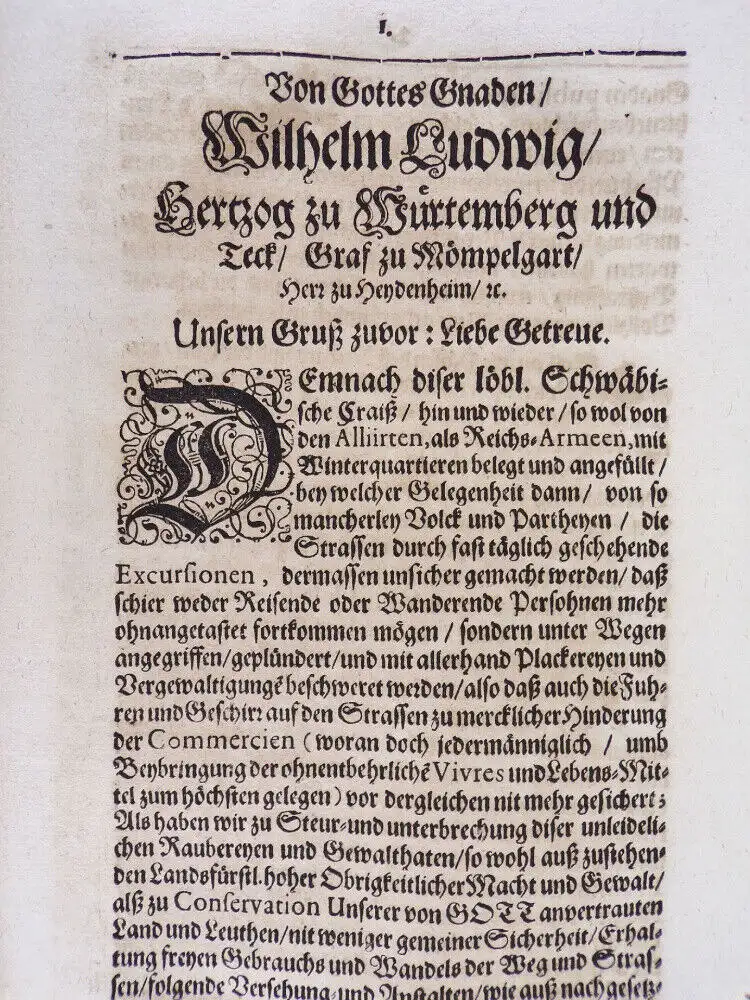 I.
Von Gottes Gnaden/
Wilhelm Ludwig/
Hertzog zu Würtemberg und
Teck/ Graf zu Mömpelgart/
Herr zu Heydenheim/ ꝛc.
Unsern Gruß zuvor : Liebe Getreue.
DEmnach diser löbl. Schwäbi-
sche Craiß / hin und wieder / so wol von
den Alliirten, als Reichs-Armeen, mit
Winterquartieren belegt und angefüllt /
bey welcher Gelegenheit dann / von so
mancherley Volck und Partheyen / die
Strassen durch fast täglich geschehende
Excursionen, dermassen unsicher gemacht werden/ daß
schier weder Reisende oder Wanderende Persohnen mehr
ohnangetastet fortkommen mögen / sondern unter Wegen
angegriffen/geplündert/und mit allerhand Plackereyen und
Vergewaltigungē beschweret werden/also daß auch die Fuh-
ren und Geschirr auf den Strassen zu mercklicher Hinderung
der Commercien (woran doch jedermänniglich / umb
Beybringung der ohnentbehrlichē Vivres und Lebens-Mit-
tel zum höchsten gelegen) vor dergleichen nit mehr gesichert;
Als haben wir zu Steur-und unterbrechung diser unleideli-
chen Raubereyen und Gewalthaten/so wohl auß zustehen-
den Landsfürstl. hoher Obrigkeitlicher Macht und Gewalt/
alß zu Conservation Unserer von GOTT anvertrauten
Land und Leuthen/nit weniger gemeiner Sicherheit/Erhal-
tung freyen Gebrauchs und Wandels der Weg und Stras-
sen/folgende Versehung-und Anstalten/wie auß nachgesetz-